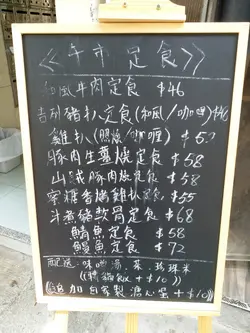 《午市定食》
和風牛肉定食 $46
吉列豬扒定食(和風/咖喱) $46
雞扒(照燒/咖喱) $5
豚肉生薑燒定食 $58
山賊豚肉燒定食 $58
蜜糖香橘雞扒定食 $55
斗煮豬軟骨定食 $68
鯖魚定食 $58
鰻魚定食 $72
配送 味噌湯、菜、珍珠米
(轉 飯 + $10)
(加自家製溏心蛋 + $10)